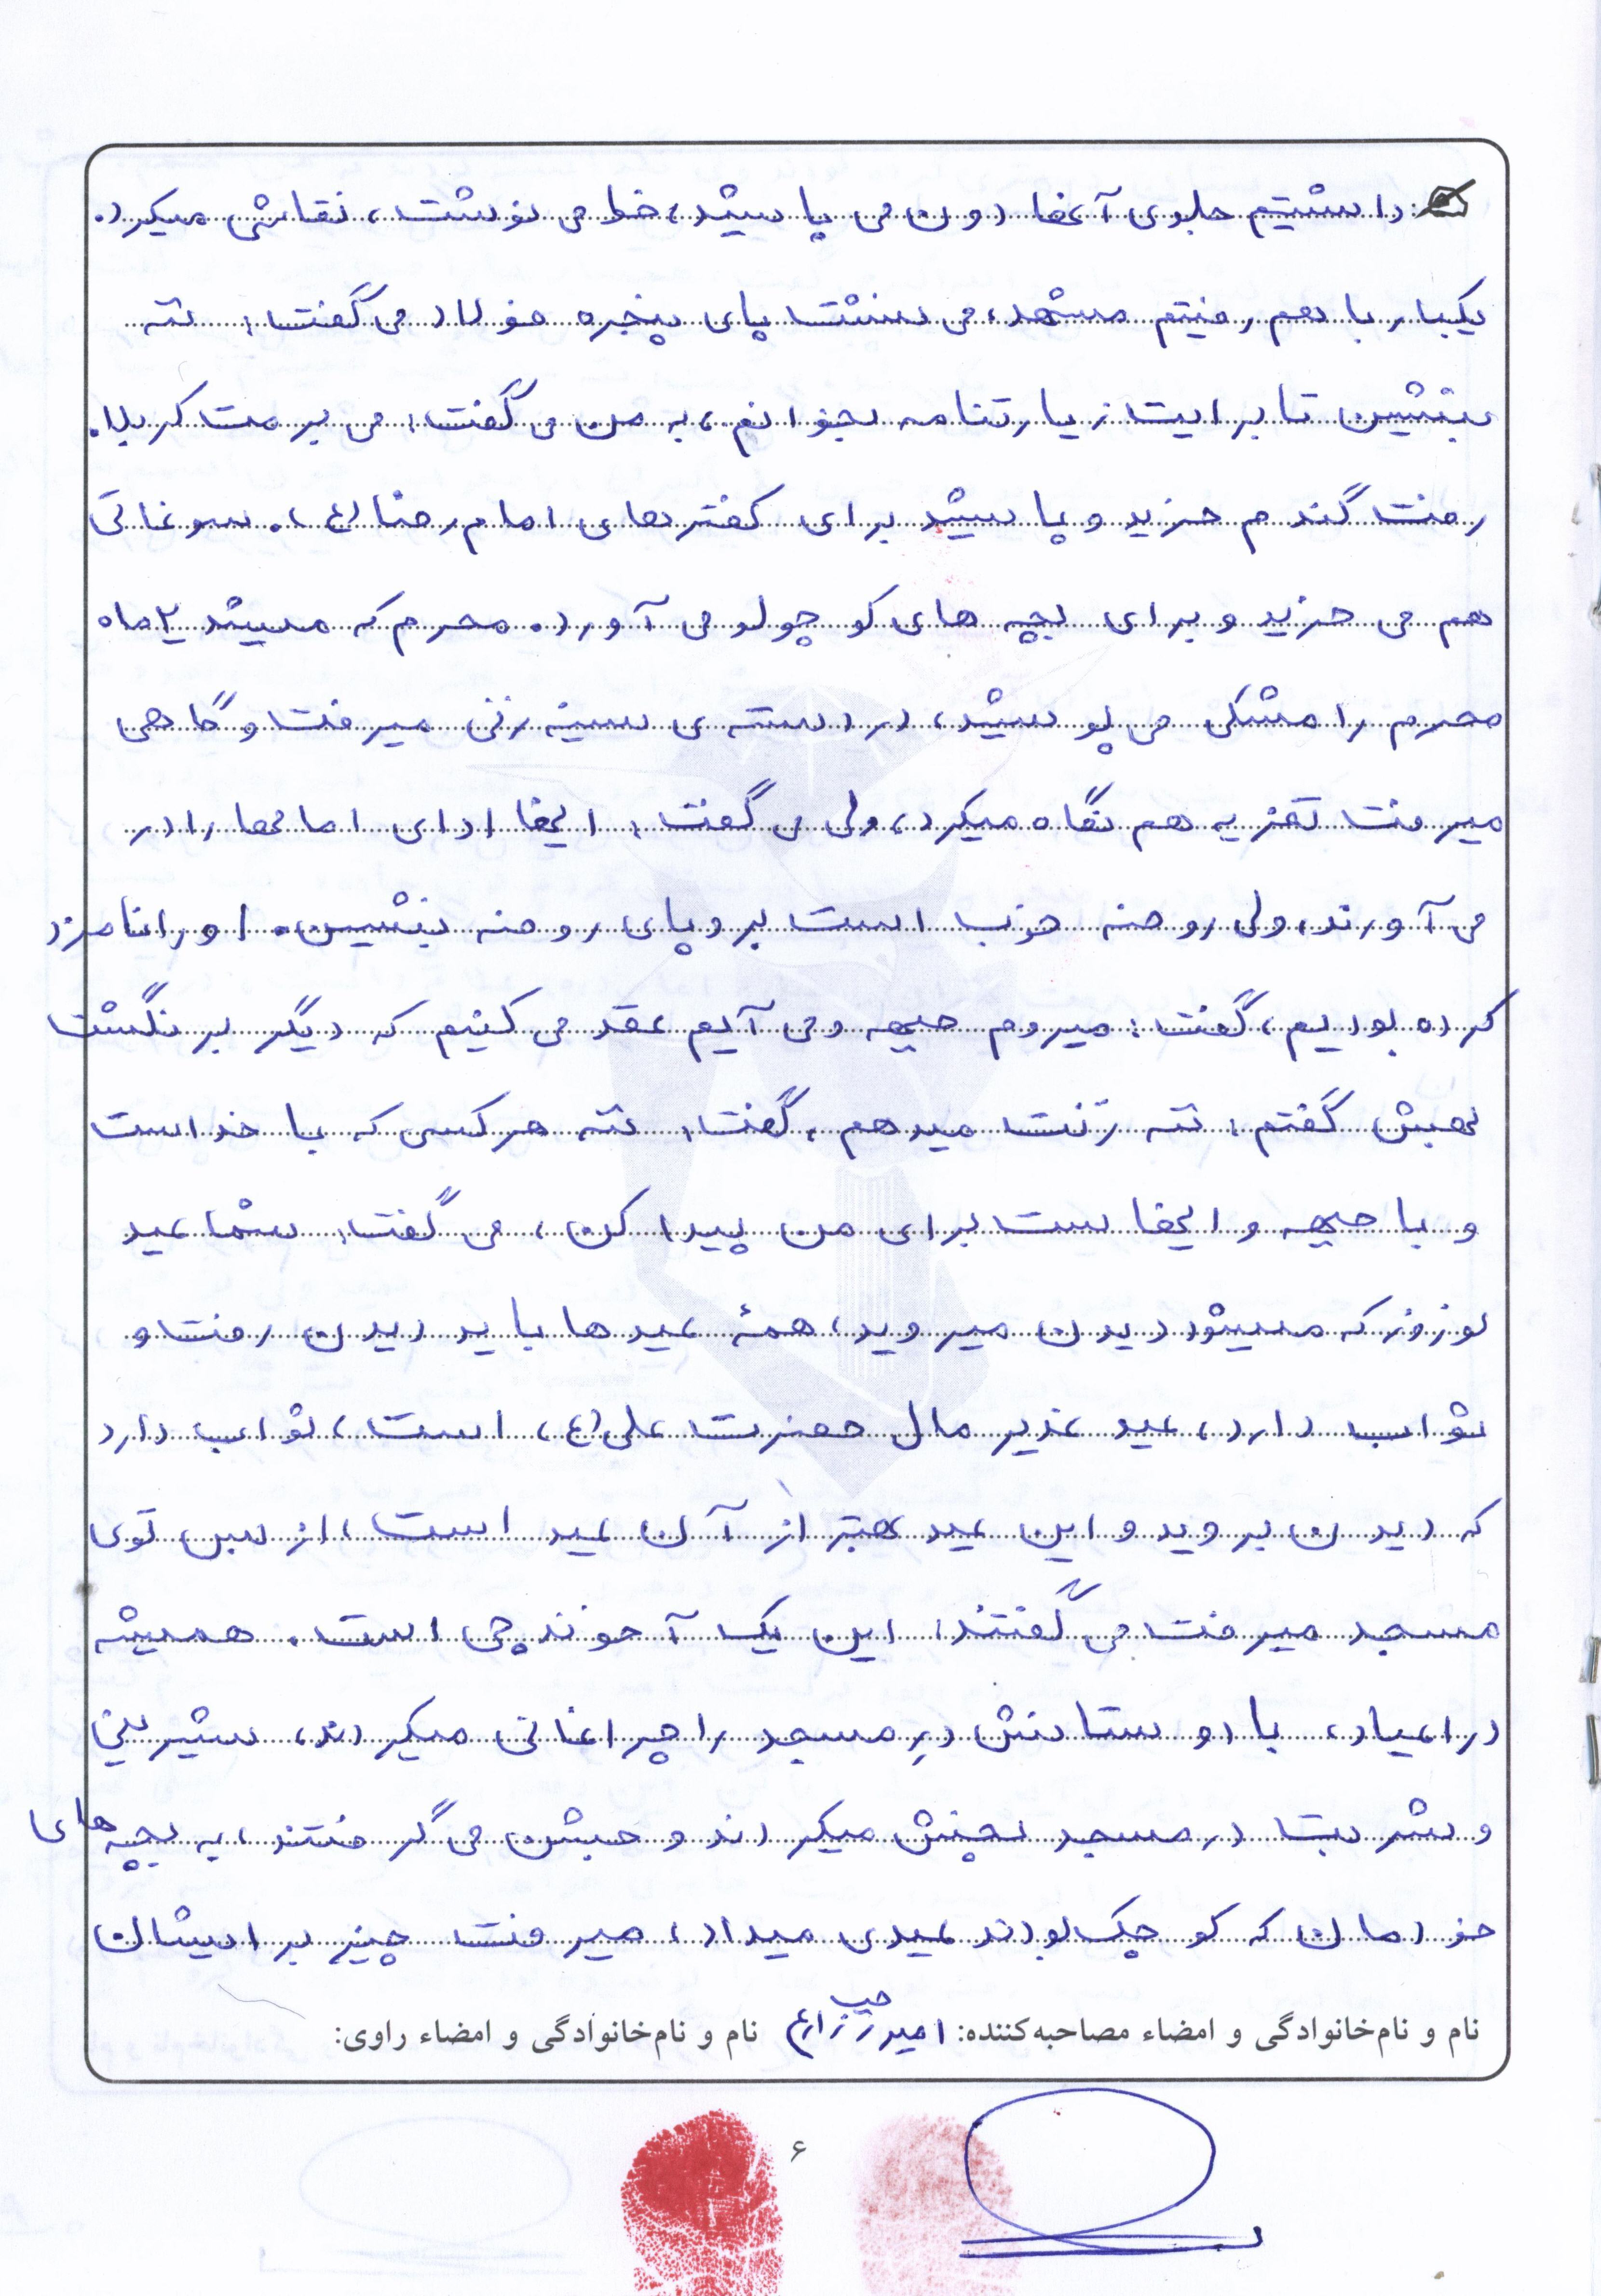 داشتیم جلوی آنها دون می پاشید، خط می نوشت، نقاشی میکرد.
یکبار با هم رفتیم مشهد، می نشست پای پنجره فولاد می گفت: ننه
بنشین تا برایت زیارتنامه بخوانم، به من می گفت: می برمت کربلا.
رفت گندم خرید و پاشید برای کفترهای امام رضا (ع). سوغاتی
هم می خرید و برای بچه های کوچولو می آورد. محرم که میشد ۲ ماه
محرم را مشکی می پوشید، در دسته ی سینه زنی میرفت و گاهی
میرفت تعزیه هم نگاه میکرد، ولی می گفت: اینها ادای امامها را در
می آورند، ولی روضه خوب است برو پای روضه بنشین. او را نامزد
کرده بودیم، گفت: میروم جبهه و می آیم عقد می کنیم که دیگر برنگشت
بهش گفتم: ننه زنت میدهم، گفت: ننه هر کسی که با خداست
و با جبهه و اینهاست برای من پیدا کن، می گفت: شما عید
نوزوز که میشود دیدن میروید، همۀ عیدها باید دیدن رفت و
ثواب دارد، عید غدیر مال حضرت علی (ع) است، ثواب دارد
که دیدن بروید و این عید بهتر از آن عید است، از سن توی
مسجد میرفت می گفتند: این یک آخوند چی است. همیشه
در اعیاد، با دوستانش درِ مسجد را چراغانی میکردند، شیرینی
و شربت در مسجد پخش میکردند و جشن می گرفتند، به بچه های
خودمان که کوچک بودند عیدی میداد، میرفت چیز برایشان
نام و نام‌خانوادگی و امضاء مصاحبه‌کننده: امیر زارع نام و نام‌خانوادگی و امضاء راوی:
۶